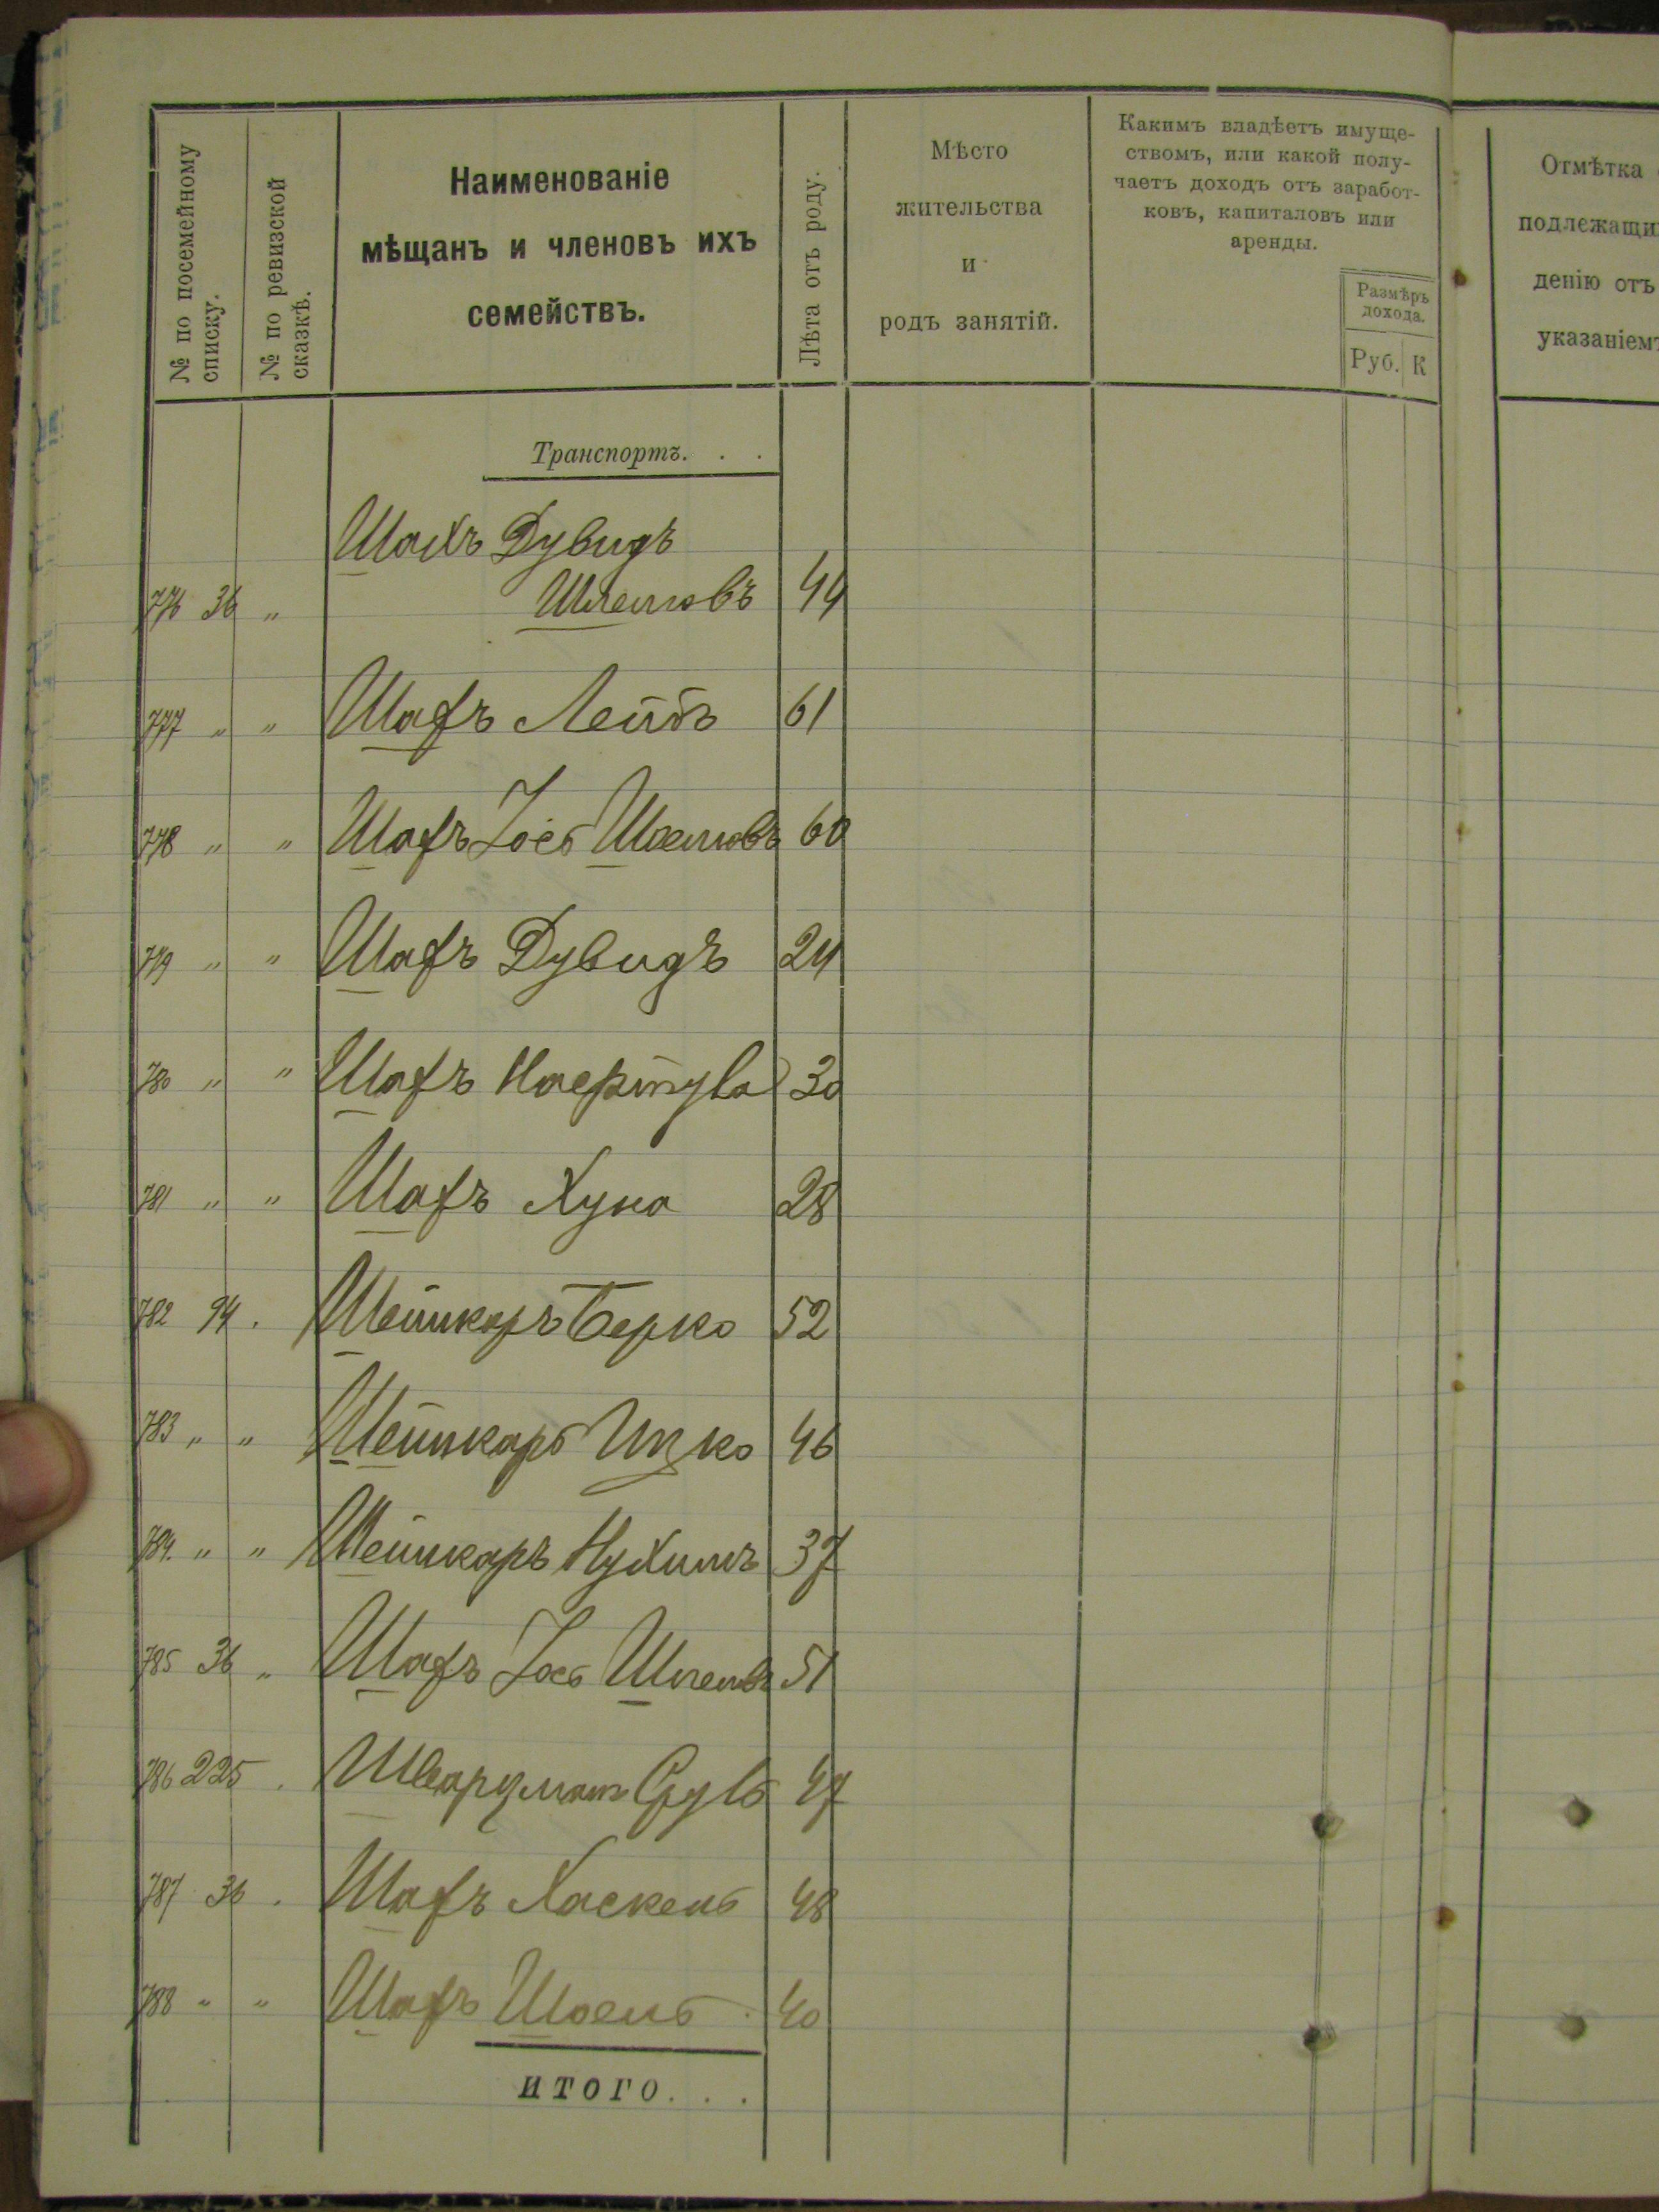 № по посемейному
списку.
№ по ревизской
сказкѣ.
Наименованіе
мѣщанъ и членовъ ихъ
семействъ.
Лѣта отъ роду.
Мѣсто
жительства
и
родъ занятій.
Какимъ владѣетъ имуще-
ствомъ, или какой полу-
чаетъ доходъ отъ заработ-
ковъ, капиталовъ или
аренды.
Размѣръ
дохода.
Руб. К
Отмѣтка
подлежащи
денію отъ
указаніемъ
Транспортъ. . .
Шахъ Дувидъ
776 36 „ Шлемовъ 44
777 „ „ Шафъ Лейбъ 61
778 „ „ Шафъ Іось 60
779 „ „ Шафъ Дувидъ 24
780 „ „ Шафъ 30
781 „ „ Шафъ Хуна 28
782 94 . Шейнкаръ Берко 52
783 „ „ Шейнкаръ Ицко 46
784. „ „ Шейнкаръ Нухимъ 37
785 36 „ Шафъ Іось 51
786 225 . Шварцманъ Сруль 47
787 36 . Шафъ Хаскель 48
788 „ „ Шафъ 40
ИТОГО. . .